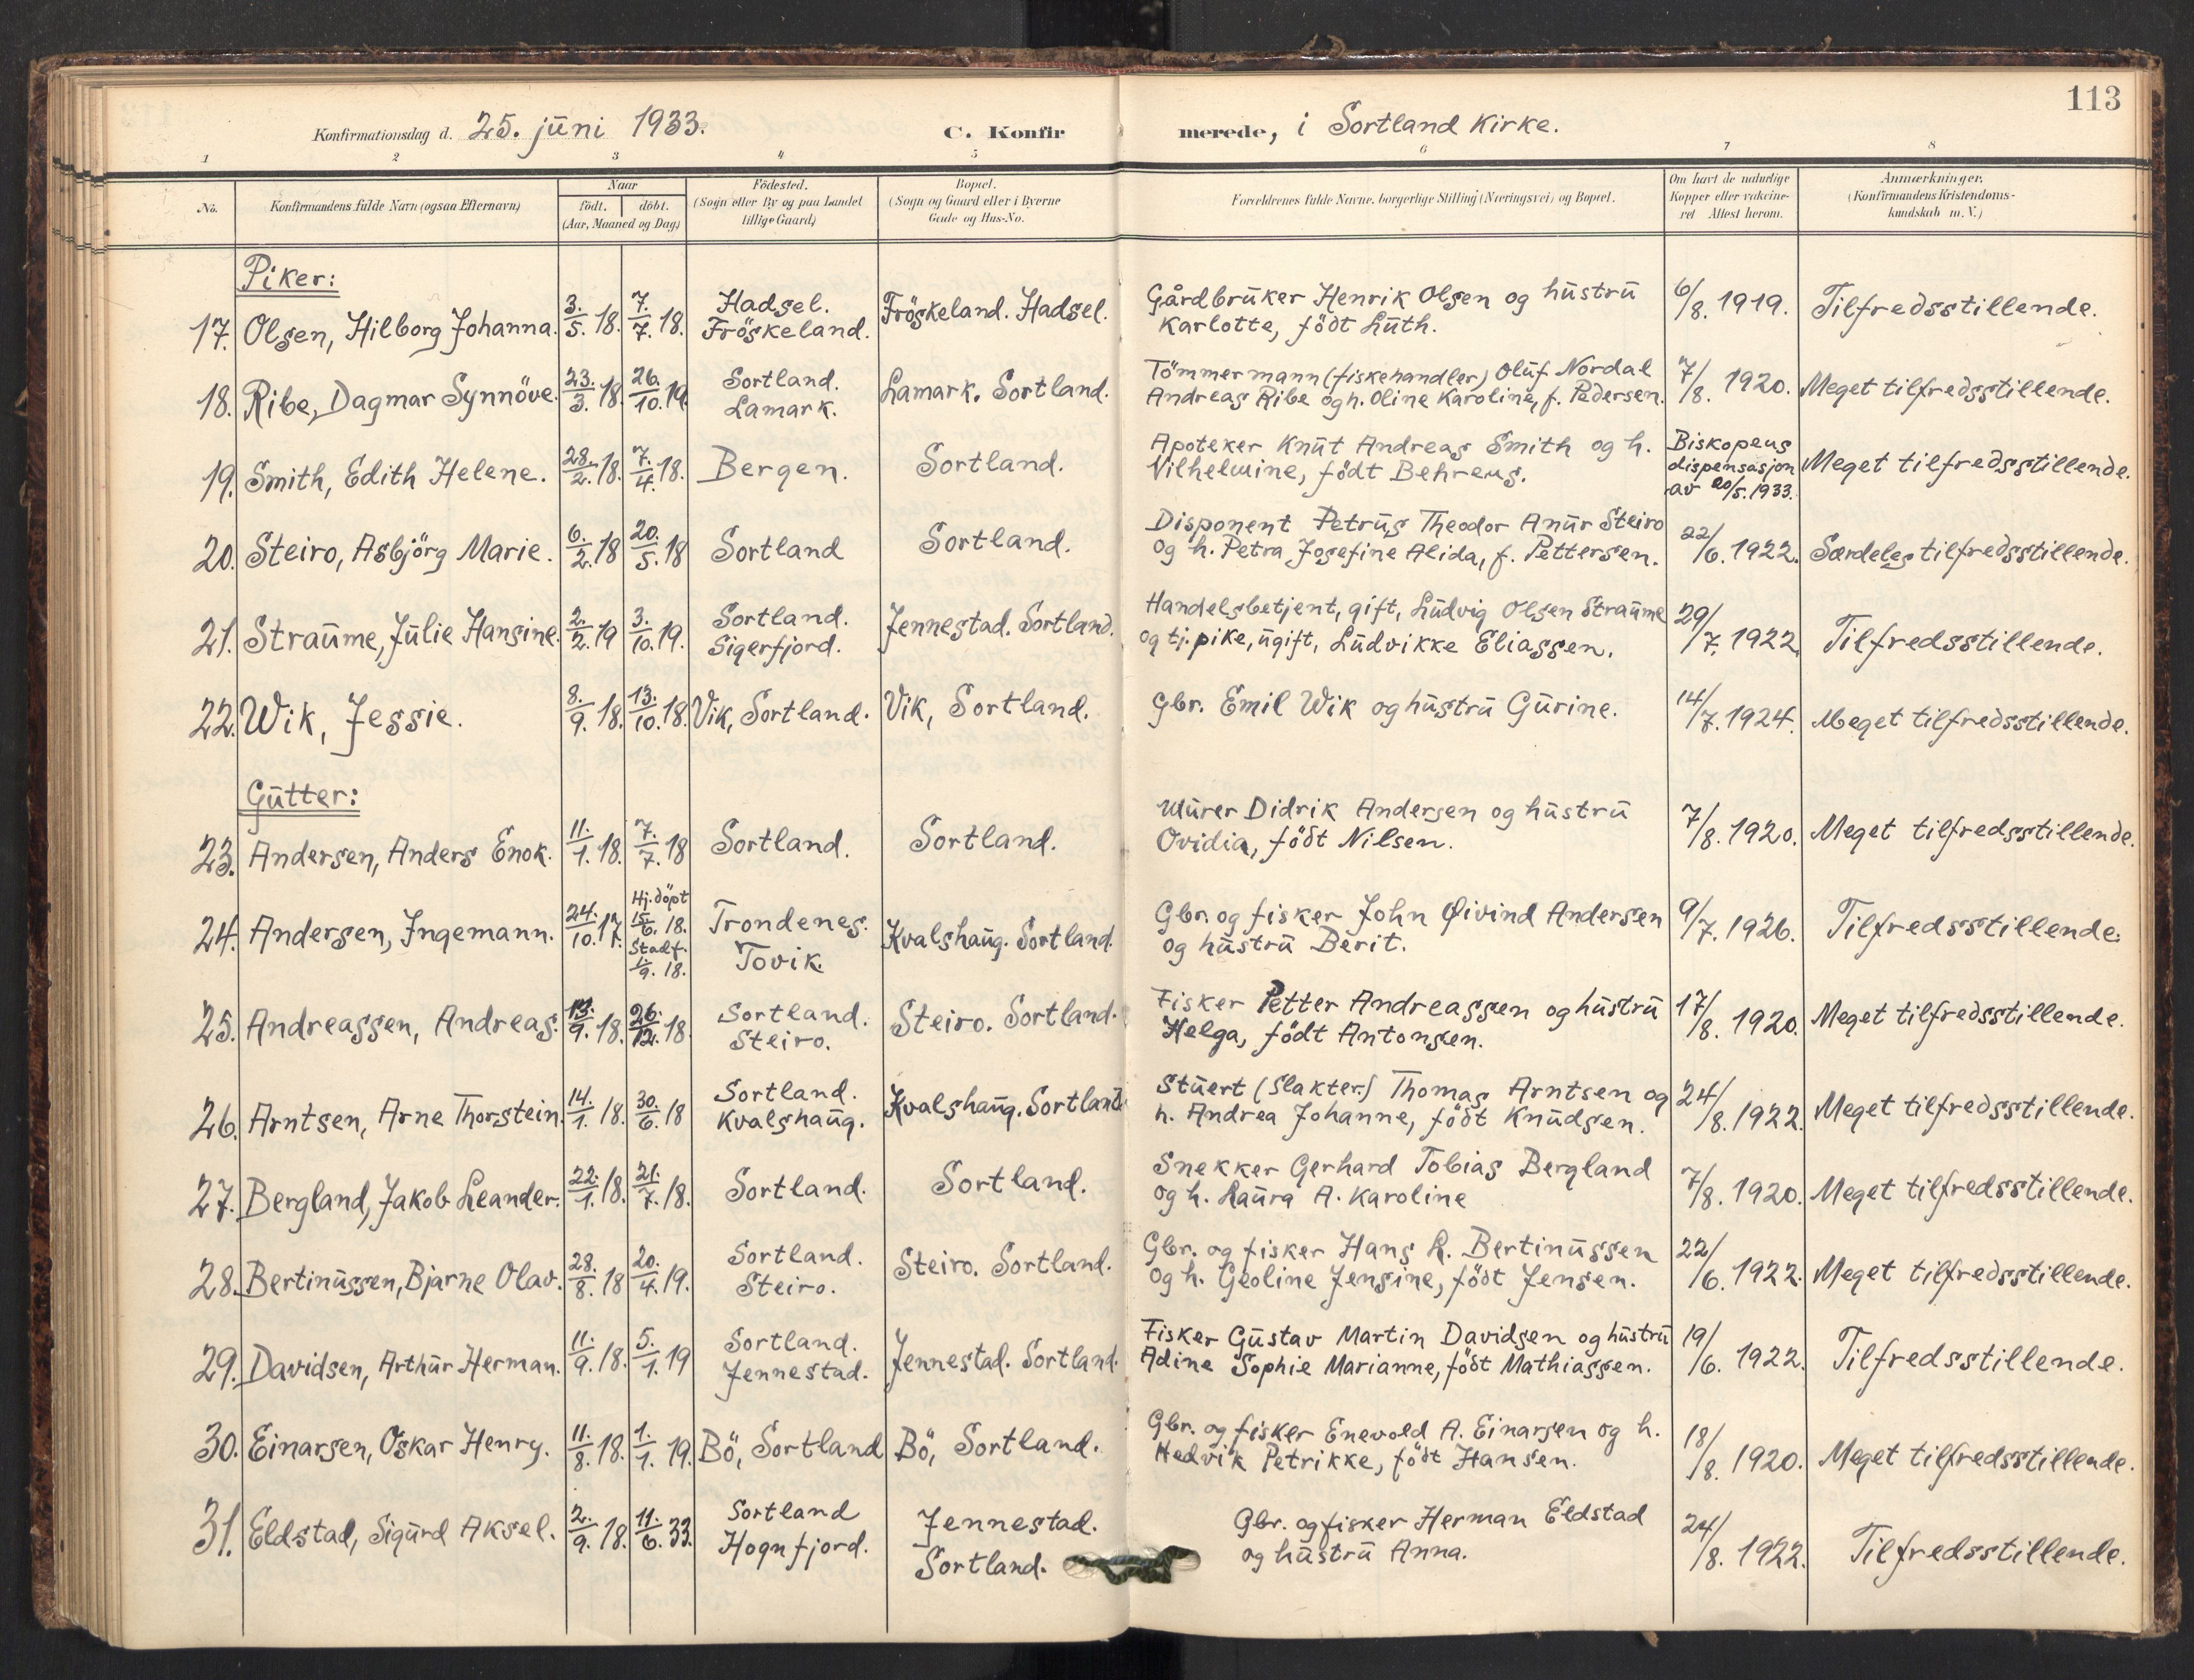 113
Konfirmationsdag d. 25. juni 1933. C. Konfirmerede, i Sortland Kirke.
1 2 3 4 5 6 7 8
No. Konfirmandens fulde Navn (ogsaa Efternavn) Naar födt. döbt. (Aar, Maaned og Dag) Födested. (Sogn eller By og paa Landet tillige Gaard) Bopæl. (Sogn og Gaard eller i Byerne Gade og Hus-No. Forældrenes fulde Navne, borgerlige Stilling (Næringsvei) og Bopæl. Om havt de naturlige Kopper eller vakcineret Attest herom. Anmærkninger. (Konfirmandens Kristendomskundskab m. V.)
Piker:
17. Olsen, Hilborg Johanna. 3./5. 18. 7./7. 18. Hadsel. Fröskeland. Fröskeland. Hadsel. Gårdbruker Henrik Olsen og hustru Karlotte, födt Luth. 6/8. 1919. Tilfredsstillende.
18. Ribe, Dagmar Synnöve. 23./3. 18. 26./10. 19. Sortland. Lamark. Lamark. Sortland. Tömmermann (fiskehandler) Oluf Nordal Andreas Ribe og h. Oline Karoline, f. Pedersen. 7/8. 1920. Meget tilfredsstillende.
19. Smith, Edith Helene. 28./2. 18. 7./4. 18. Bergen. Sortland. Apoteker Knut Andreas Smith og h. Vilhelmine, födt Behrens. Biskopens dispensasjon av 20/5. 1933. Meget tilfredsstillende.
20. Steiro, Asbjörg Marie. 6./2. 18 20./5. 18 Sortland Sortland. Disponent Petrus Theodor Anur Steiro og h. Petra Josefine Alida, f. Pettersen. 22/6. 1922. Særdeles tilfredsstillende.
21. Straume, Julie Hansine. 2./2. 19 3./10. 19. Sortland. Sigerfjord. Jennestad. Sortland. Handelsbetjent, gift, Ludvig Olsen Straume og tj. pike, ugift, Ludvikke Eliassen. 29/7. 1922. Tilfredsstillende.
22. Wik, Jessie. 8./9. 18. 13./10. 18. Vik, Sortland. Vik, Sortland. Gbr. Emil Wik og hustru Gurine. 14/7. 1924. Meget tilfredsstillende.
Gutter:
23. Andersen, Anders Enok. 11./1. 18. 7./7. 18 Sortland. Sortland. Murer Didrik Andersen og hustru Ovidia, födt Nilsen. 7/8. 1920. Meget tilfredsstillende.
24. Andersen, Ingemann. 24./10. 17. Hj. döpt 15./6. 18. Stadf. 1./9. 18. Trondenes. Tovik. Kvalshaug. Sortland. Gbr. og fisker John Øivind Andersen og hustru Berit. 9/7. 1926. Tilfredsstillende.
25. Andreassen, Andreas. 13./9. 18. 26./12. 18. Sortland. Steiro. Steiro. Sortland. Fisker Petter Andreassen og hustru Helga, födt Antonsen. 17/8. 1920. Meget tilfredsstillende.
26. Arntsen, Arne Thorstein. 14./1. 18. 30./6. 18 Sortland. Kvalshaug. Kvalshaug. Sortland. Stuert (Slakter) Thomas Arntsen og h. Andrea Johanne, födt Knudsen. 24/8. 1922. Meget tilfredsstillende.
27. Bergland, Jakob Leander. 22./1. 18. 21./7. 18. Sortland. Sortland. Snekker Gerhard Tobias Bergland og h. Laura A. Karoline 7/8. 1920. Meget tilfredsstillende.
28. Bertinussen, Bjarne Olav. 28./8. 18 20./4. 19. Sortland. Steiro. Steiro. Sortland. Gbr. og fisker Hans L. Bertinussen og h. Geoline Jensine, födt Jensen. 22/6. 1922. Meget tilfredsstillende.
29. Davidsen, Arthur Herman. 11./9. 18. 5./1. 19 Sortland. Jennestad. Jennestad. Sortland. Fisker Gustav Martin Davidsen og hustru Adine Sophie Marianne, födt Mathiassen. 19/6. 1922. Tilfredsstillende.
30. Einarsen, Oskar Henry. 11./8. 18. 1./1. 19. Bö, Sortland Bö, Sortland. Gbr. og fisker Enevold A. Einarsen og h. Hedvik Petrikke, födt Hansen. 18/8. 1920. Meget tilfredsstillende.
31. Eldstad, Sigurd Aksel. 2./9. 18. 11./6. 33. Sortland Hognfjord. Jennestad. Sortland. Gbr. og fisker Herman Eldstad og hustru Anna. 24/8. 1922. Tilfredsstillende.